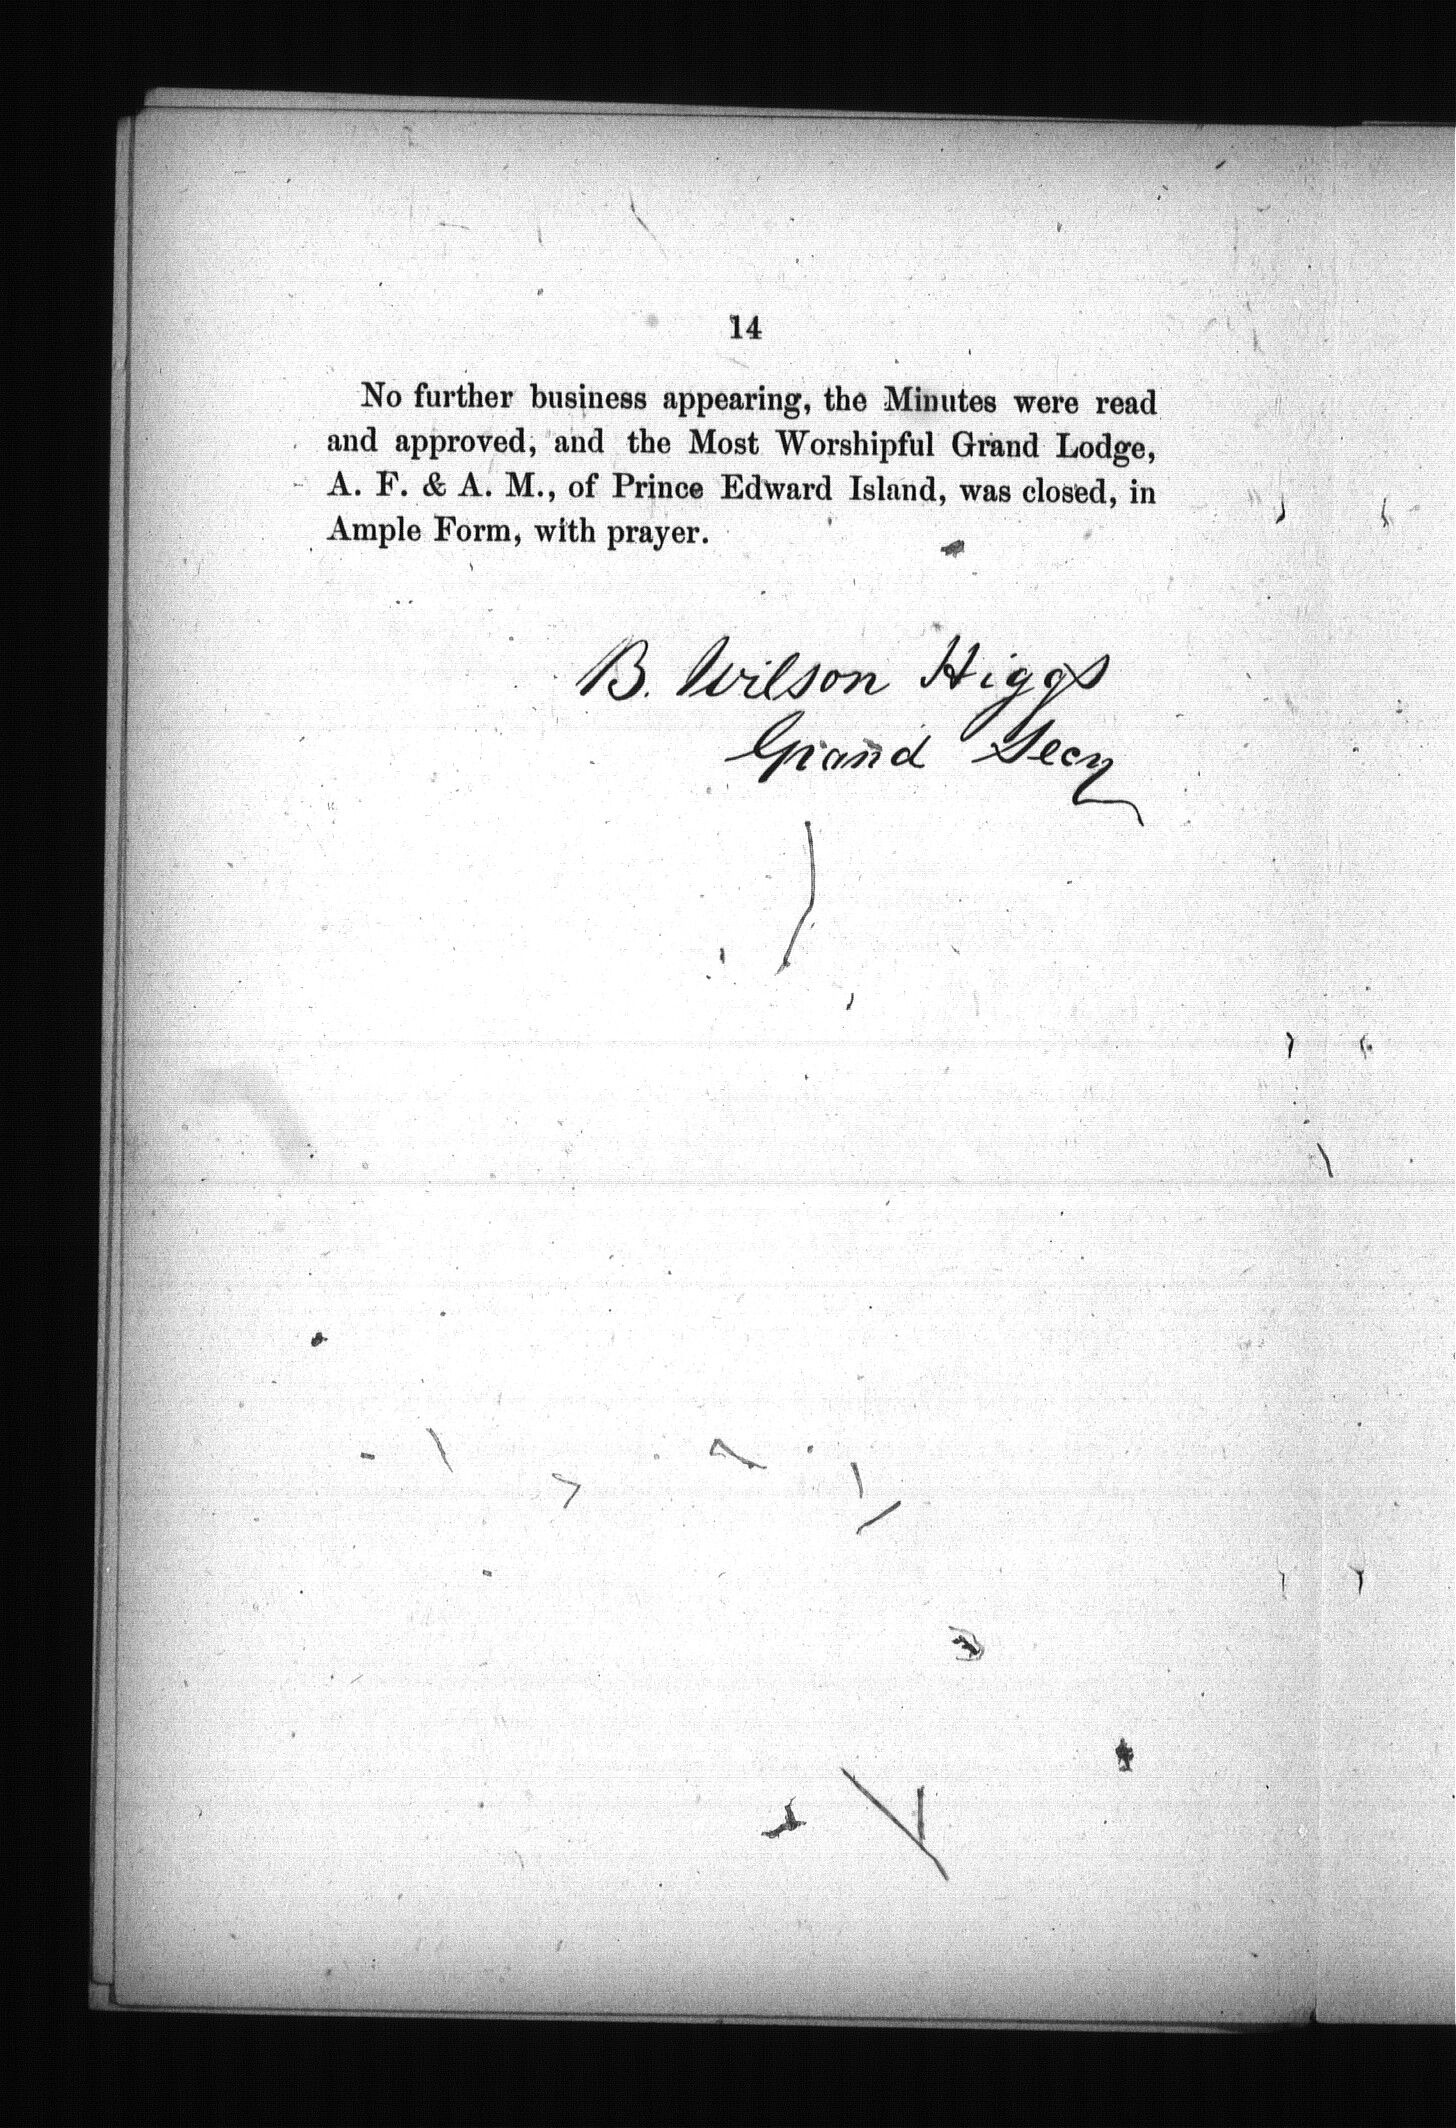 14
No further business appearing, the Minutes were read
and approved, and the Most Worshipful Grand Lodge,
A. F. & A. M., of Prince Edward Island, was closed, in
Ample Form, with prayer.
B. Wilson Higgs
Grand Secy